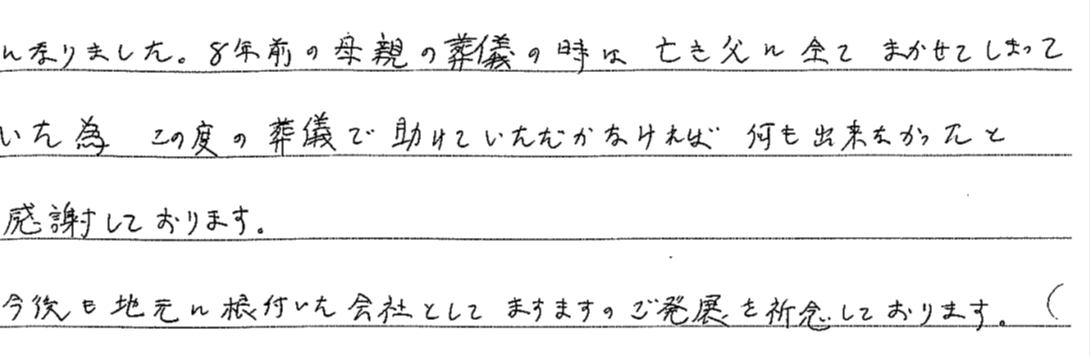 になりました。8年前の母親の葬儀の時は 亡き父に全て まかせてしまって
いた為 この度の葬儀で助けていただかなければ 何も出来なかったと
感謝しております。
今後も地元に根付いた会社として ますますのご発展を祈念しております。(